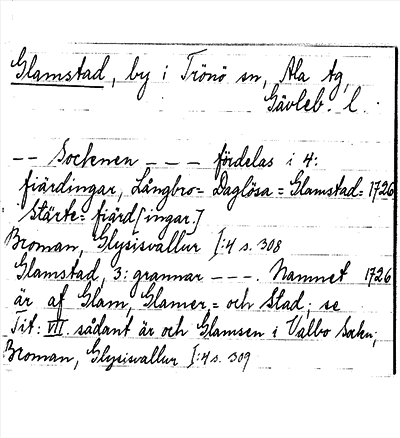 Glamstad, by i Trönö sn, Ala tg,
Gävleb. l.
-- Socknen - - - fördelas i 4:
fiärdingar, Långbro= Daglösa= Glamstad= 1726
Stärte= fiärd[ingar.]
Broman, Glysisvallur I:4 s. 308
Glamstad, 3: grannar - - -. Namnet 1726
är af Glam, Glamer= och Stad; se
Tit: VII. sådant är och Glamsen i Valbo Sokn;
Broman, Glysisvallur I:4 s. 309